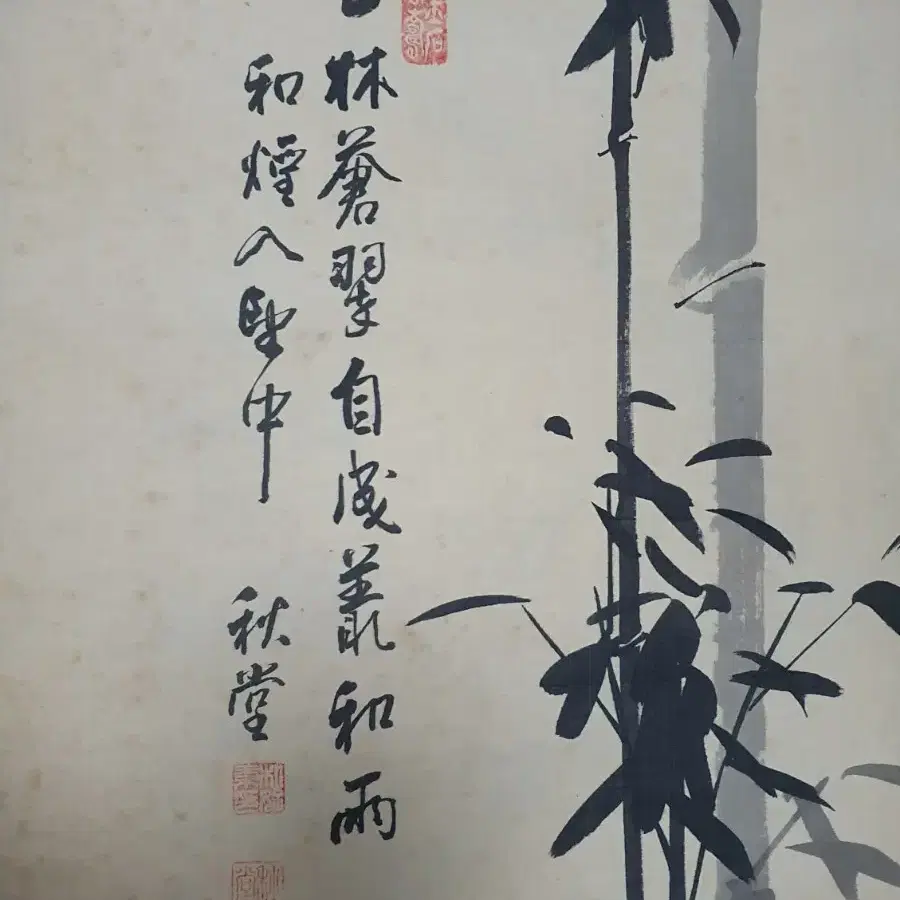 林蒼翠自成叢和雨
和煙入望中
秋堂